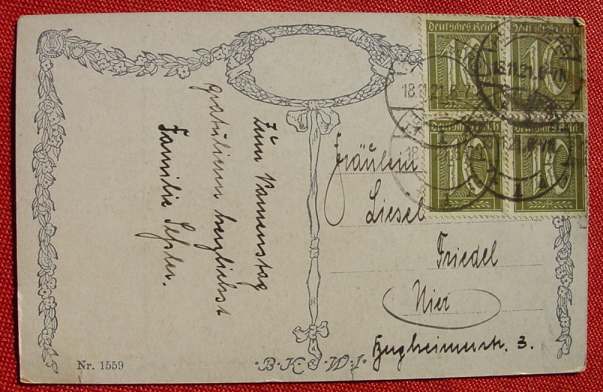 Zum Namenstag
gratulieren herzlichst
Familie
Deutsches Reich
10
Deutsches Reich
10
Deutsches Reich
10
Deutsches Reich
10
18.11.21
Fräulein
Liesel
Friedel
Hier
3.
Nr. 1559
B.K.W.I.